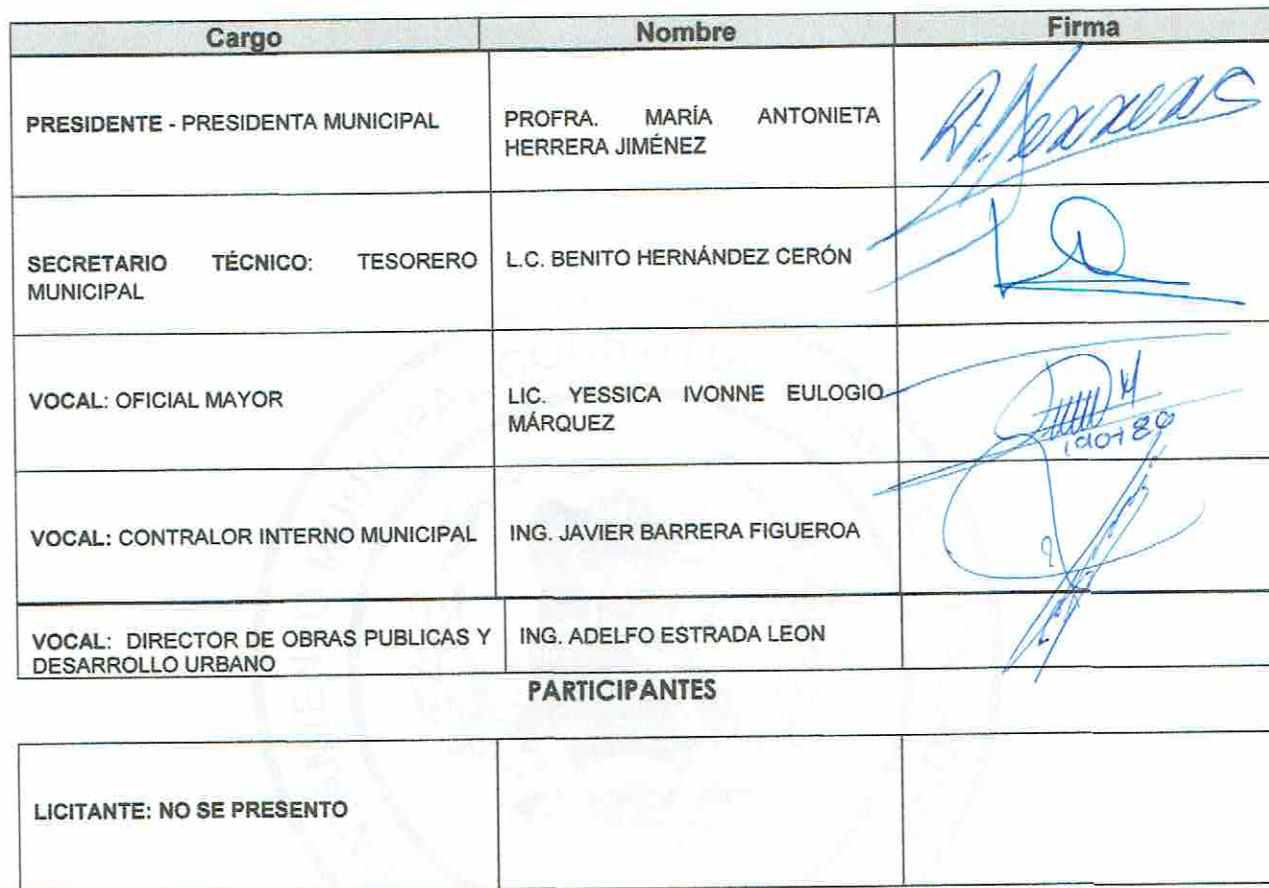 Cargo Nombre Firma
PRESIDENTE - PRESIDENTA MUNICIPAL
PROFRA. MARÍA ANTONIETA
HERRERA JIMÉNEZ
SECRETARIO TÉCNICO: TESORERO
MUNICIPAL
L.C. BENITO HERNÁNDEZ CERÓN
VOCAL: OFICIAL MAYOR
LIC. YESSICA IVONNE EULOGIO
MÁRQUEZ
VOCAL: CONTRALOR INTERNO MUNICIPAL
ING. JAVIER BARRERA FIGUEROA
VOCAL: DIRECTOR DE OBRAS PUBLICAS Y
DESARROLLO URBANO
ING. ADELFO ESTRADA LEON
PARTICIPANTES
LICITANTE: NO SE PRESENTO